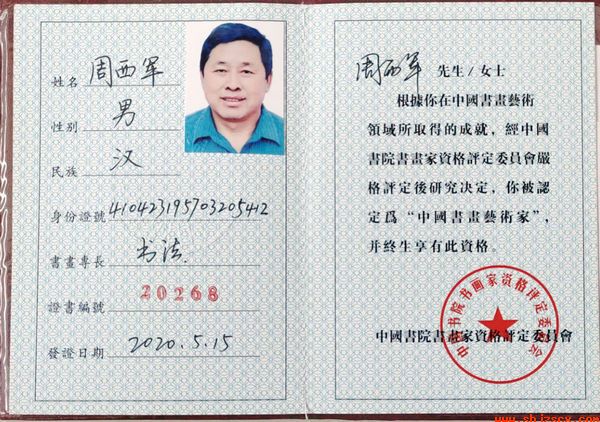 姓名 周西军
性别 男
民族 汉
身份證號 410423195703205412
書畫專長 书法
證書編號 20268
發證日期 2020.5.15
周西军 先生/女士
根據你在中國書畫藝術
領域所取得的成就，經中國
書院書畫家資格評定委員會嚴
格評定後研究決定，你被認
定爲“中國書畫藝術家”，
并終生享有此資格。
中國書院書畫家資格評定委員會
中国书院书画家资格评定委员会
www.shjzscx.com